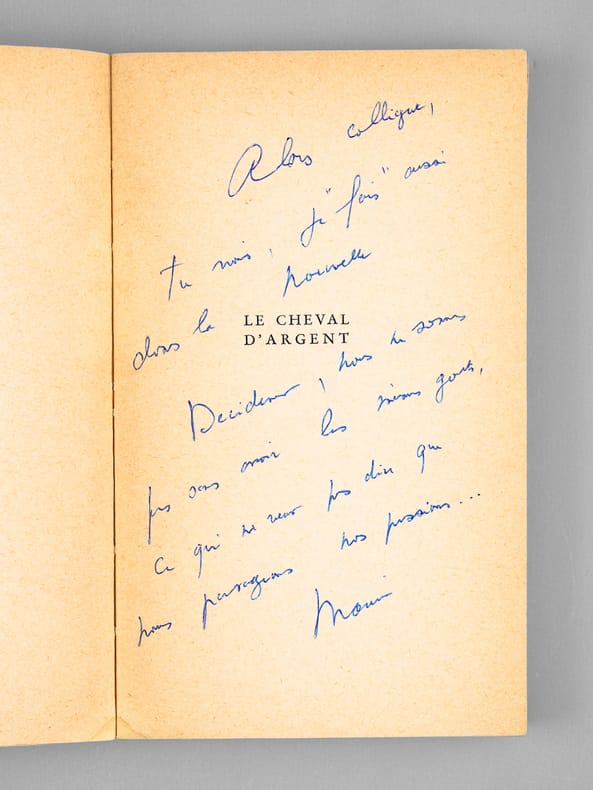 Alors collègue,
tu vois, je "fais" aussi
dans la nouvelle
LE CHEVAL
D'ARGENT
Décidément, nous ne sommes
pas sans avoir les mêmes goûts,
ce qui ne veut pas dire que
nous partageons nos passions...